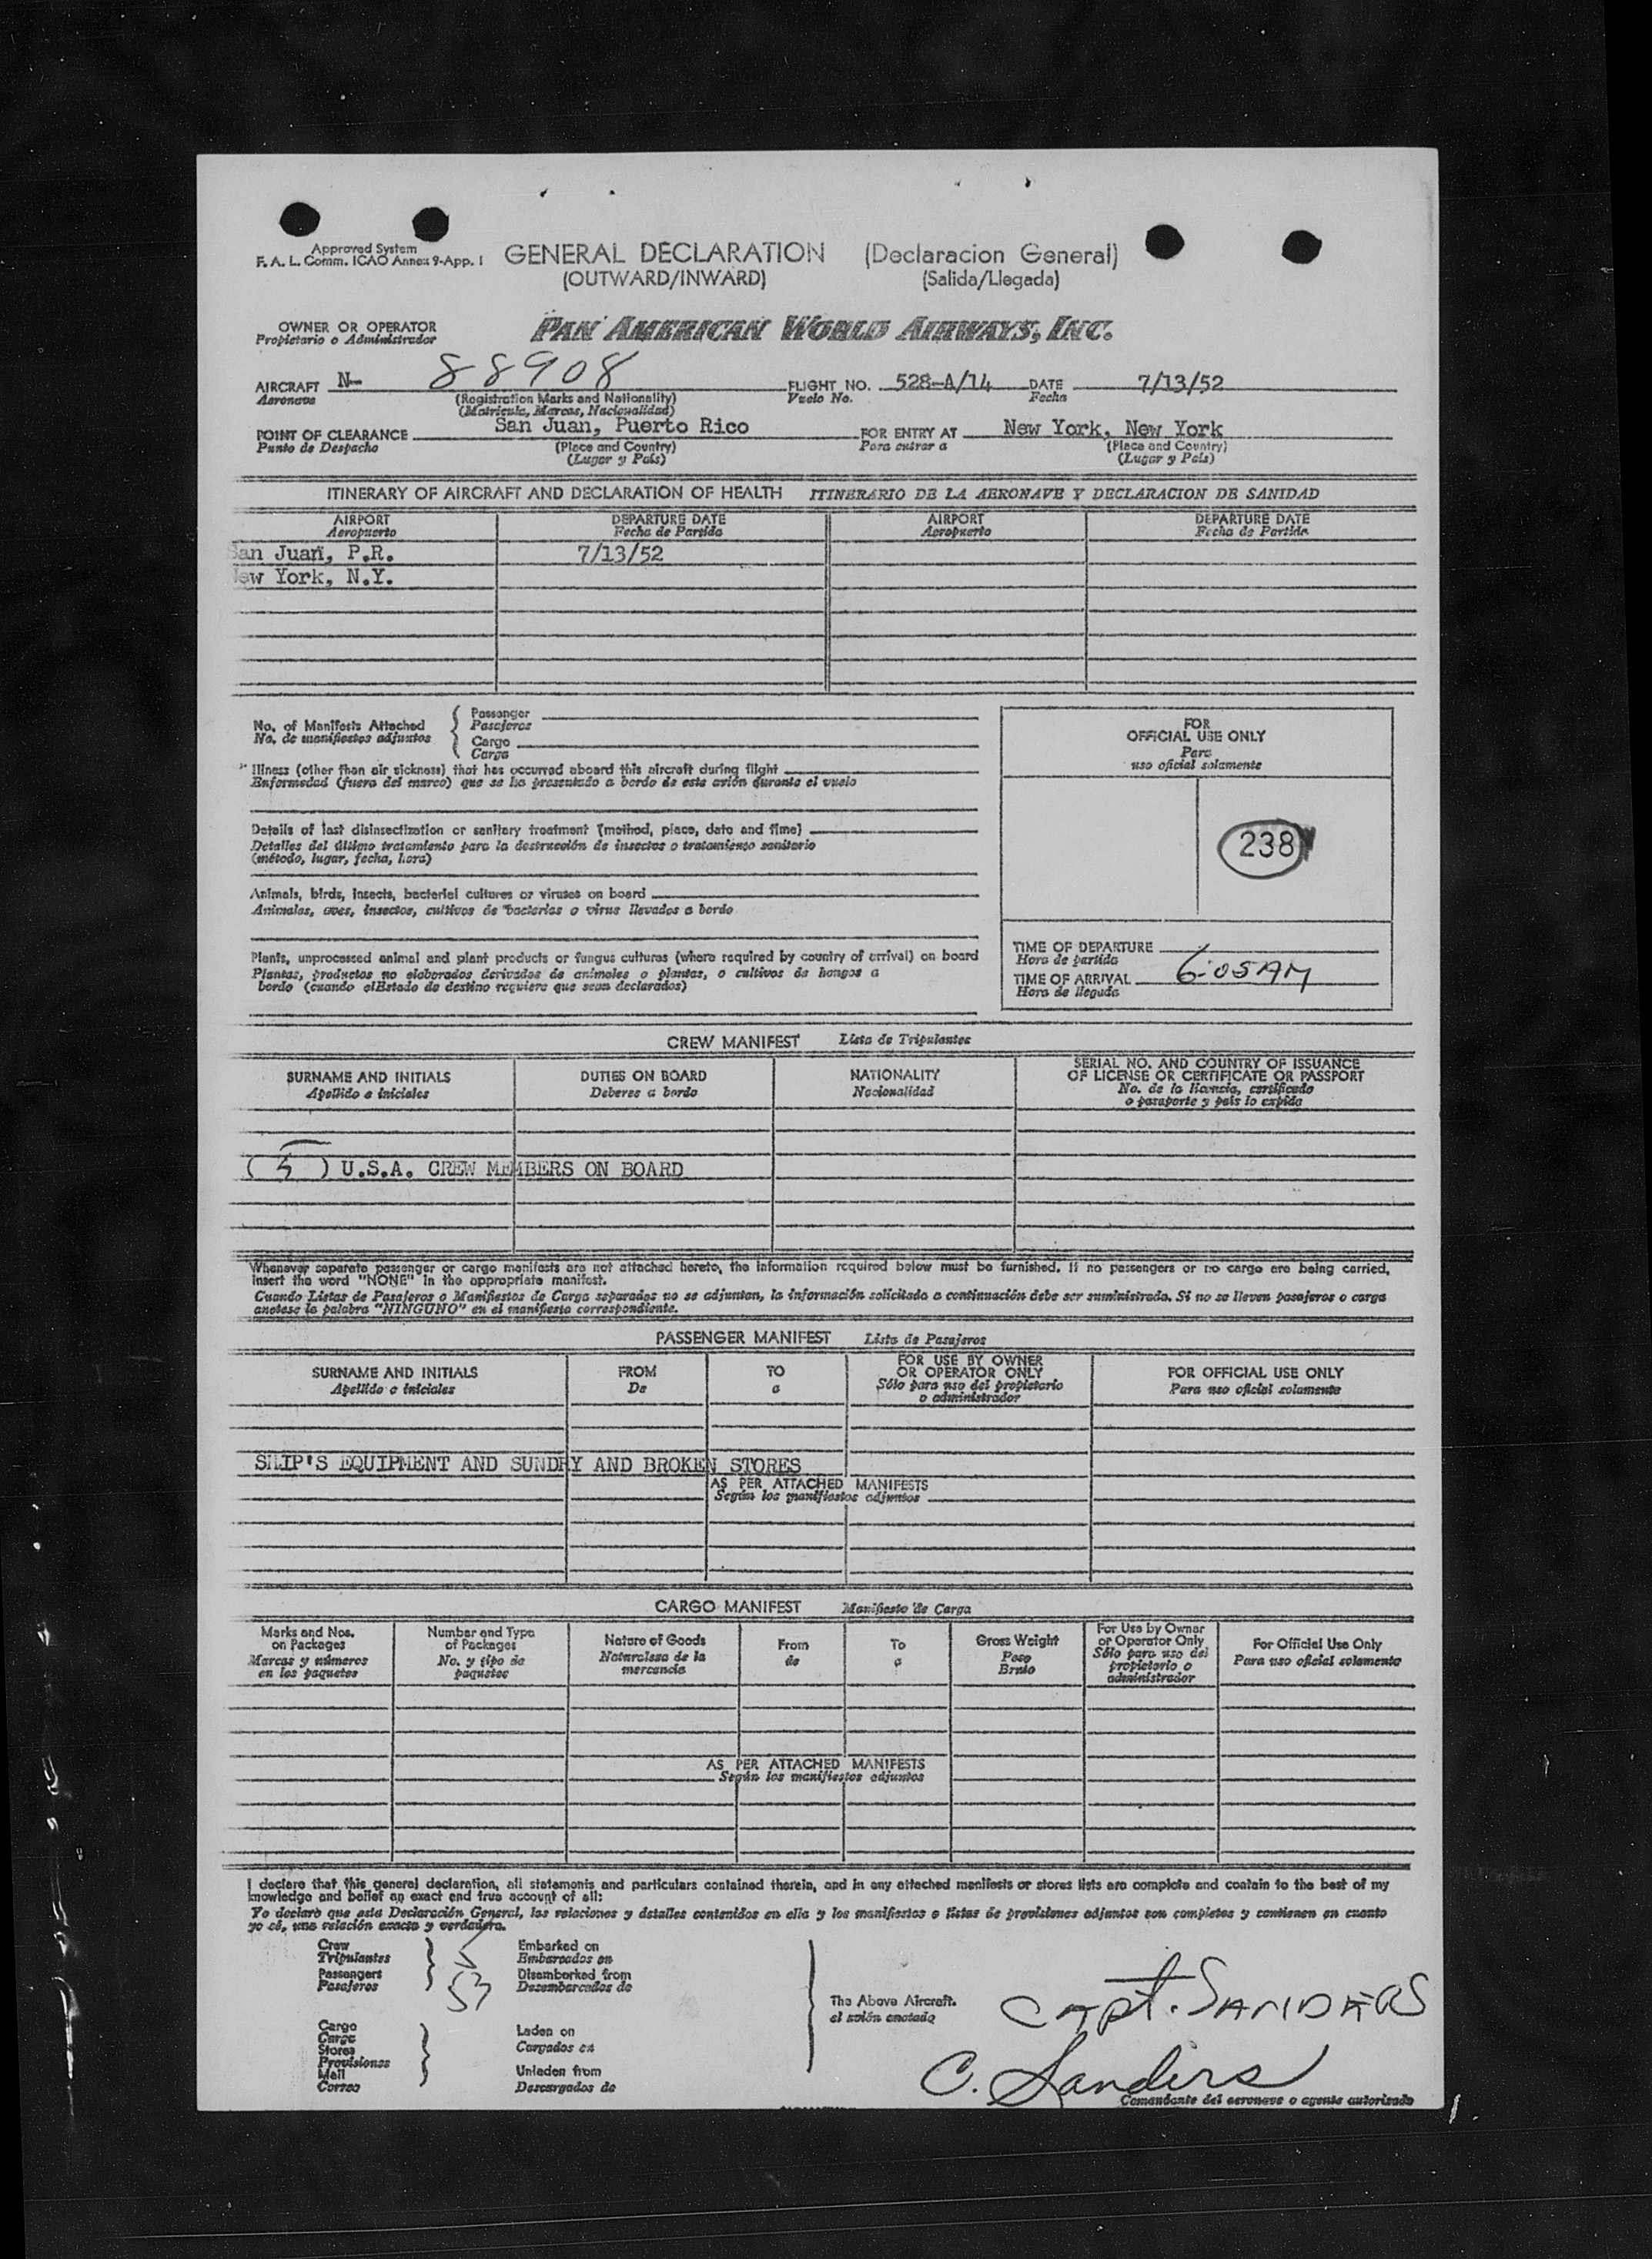 Approved System
F. A. L. Comm. ICAO Annex 9-App. I
GENERAL DECLARATION (Declaracion General)
(OUTWARD/INWARD) (Salida/Llegada)
OWNER OR OPERATOR
Propietario o Administrador
PAN AMERICAN WORLD AIRWAYS, INC.
AIRCRAFT N- 88908 FLIGHT NO. 528-A/14 DATE 7/13/52
Aeronave (Registration Marks and Nationality) Vuelo No. Fecha
(Matricula, Marcas, Nacionalidad)
POINT OF CLEARANCE San Juan, Puerto Rico FOR ENTRY AT New York, New York
Punto de Despacho (Place and Country) Para entrar a (Place and Country)
(Lugar y País) (Lugar y País)
ITINERARY OF AIRCRAFT AND DECLARATION OF HEALTH ITINERARIO DE LA AERONAVE Y DECLARACION DE SANIDAD
AIRPORT DEPARTURE DATE AIRPORT DEPARTURE DATE
Aeropuerto Fecha de Partida Aeropuerto Fecha de Partida
San Juan, P.R. 7/13/52
New York, N.Y.
No. of Manifests Attached
No. de manifiestos adjuntos
Passenger
Pasajeros
Cargo
Carga
Illness (other than air sickness) that has occurred aboard this aircraft during flight
Enfermedad (fuera del mareo) que se ha presentado a bordo de este avión durante el vuelo
Details of last disinsectization or sanitary treatment (method, place, date and time)
Detalles del último tratamiento para la destrucción de insectos o tratamiento sanitario
(método, lugar, fecha, hora)
Animals, birds, insects, bacterial cultures or viruses on board
Animales, aves, insectos, cultivos de bacterias o virus llevados a bordo
Plants, unprocessed animal and plant products or fungus cultures (where required by country of arrival) on board
Plantas, productos no elaborados derivados de animales o plantas, o cultivos de hongos a
bordo (cuando el Estado de destino requiere que sean declarados)
FOR
OFFICIAL USE ONLY
Para
uso oficial solamente
238
TIME OF DEPARTURE
Hora de partida
TIME OF ARRIVAL 6:05 AM
Hora de llegada
CREW MANIFEST Lista de Tripulantes
SURNAME AND INITIALS DUTIES ON BOARD NATIONALITY SERIAL NO. AND COUNTRY OF ISSUANCE
OF LICENSE OR CERTIFICATE OR PASSPORT
Apellido e iniciales Deberes a bordo Nacionalidad No. de la licencia, certificado
o pasaporte y país lo expide
( 5 ) U.S.A. CREW MEMBERS ON BOARD
Whenever separate passenger or cargo manifests are not attached hereto, the information required below must be furnished. If no passengers or no cargo are being carried,
insert the word "NONE" in the appropriate manifest.
Cuando Listas de Pasajeros o Manifiestos de Carga separados no se adjuntan, la información solicitada a continuación debe ser suministrada. Si no se lleven pasajeros o carga
anotese la palabra "NINGUNO" en el manifiesto correspondiente.
PASSENGER MANIFEST Lista de Pasajeros
SURNAME AND INITIALS FROM TO FOR USE BY OWNER
OR OPERATOR ONLY FOR OFFICIAL USE ONLY
Apellido o iniciales De a Sólo para uso del propietario
o administrador Para uso oficial solamente
SHIP'S EQUIPMENT AND SUNDRY AND BROKEN STORES
AS PER ATTACHED MANIFESTS
Según los manifiestos adjuntos
CARGO MANIFEST Manifiesto de Carga
Marks and Nos.
on Packages
Marcas y números
en los paquetes
Number and Type
of Packages
No. y tipo de
paquetes
Nature of Goods
Naturaleza de la
mercancía
From
de
To
a
Gross Weight
Peso
Bruto
For Use by Owner
or Operator Only
Sólo para uso del
propietario o
administrador
For Official Use Only
Para uso oficial solamente
AS PER ATTACHED MANIFESTS
Según los manifiestos adjuntos
I declare that this general declaration, all statements and particulars contained therein, and in any attached manifests or stores lists are complete and contain to the best of my
knowledge and belief an exact and true account of all:
Yo declaro que esta Declaración General, las relaciones y detalles contenidos en ella y los manifiestos o listas de provisiones adjuntos son completos y contienen en cuanto
yo sé, una relación exacta y verdadera.
Crew
Tripulantes
5
Passengers
Pasajeros
53
Embarked on
Embarcados en
Disembarked from
Desembarcados de
Cargo
Carga
Stores
Provisiones
Mail
Correo
Laden on
Cargados en
Unladen from
Descargados de
The Above Aircraft.
el avión anotado
CAPT. SANDERS
C. Sanders
Comandante del aeronave o agente autorizado